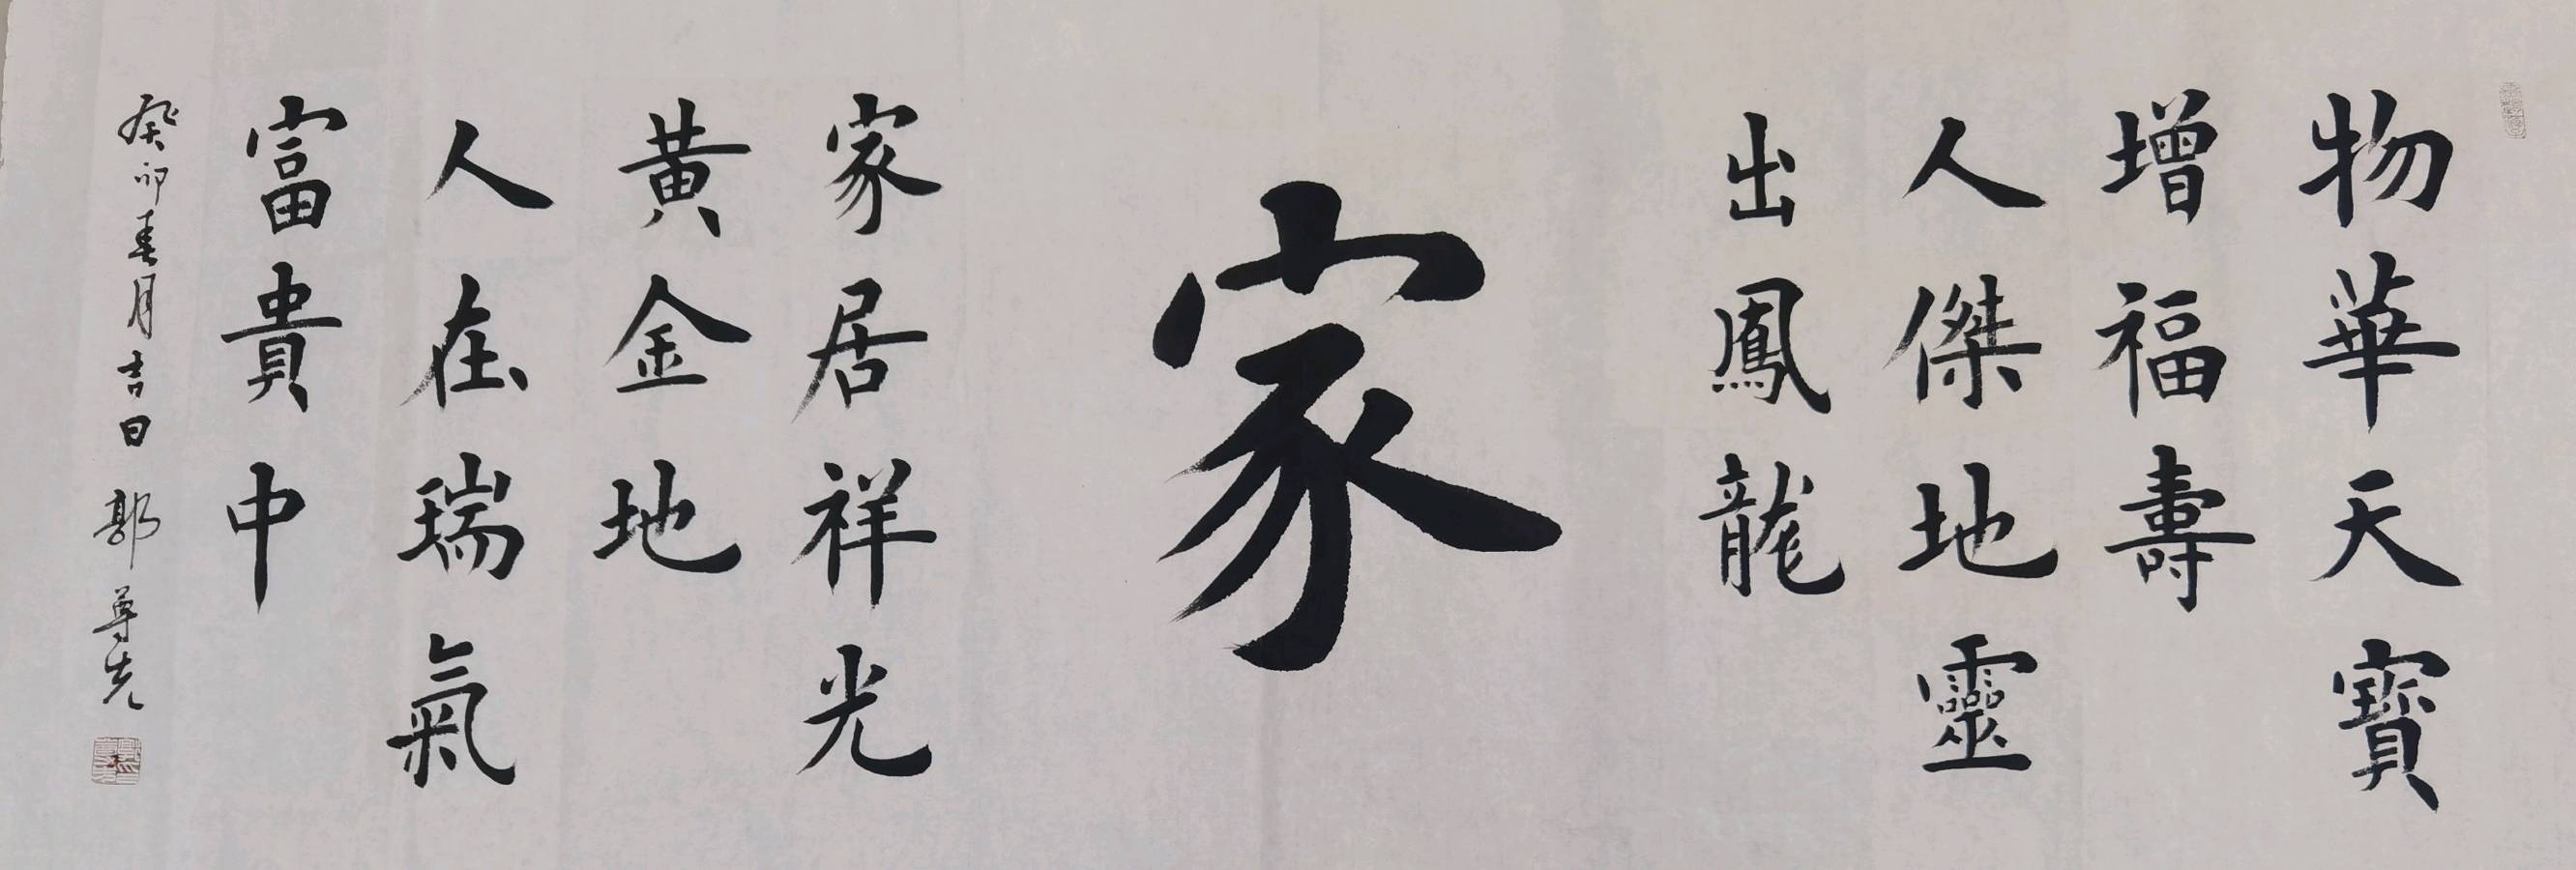 物華天寳
增福壽
人傑地靈
出鳳龍
家
家居祥光
黄金地
人在瑞氣
富貴中
癸卯春月吉日 郭尊先